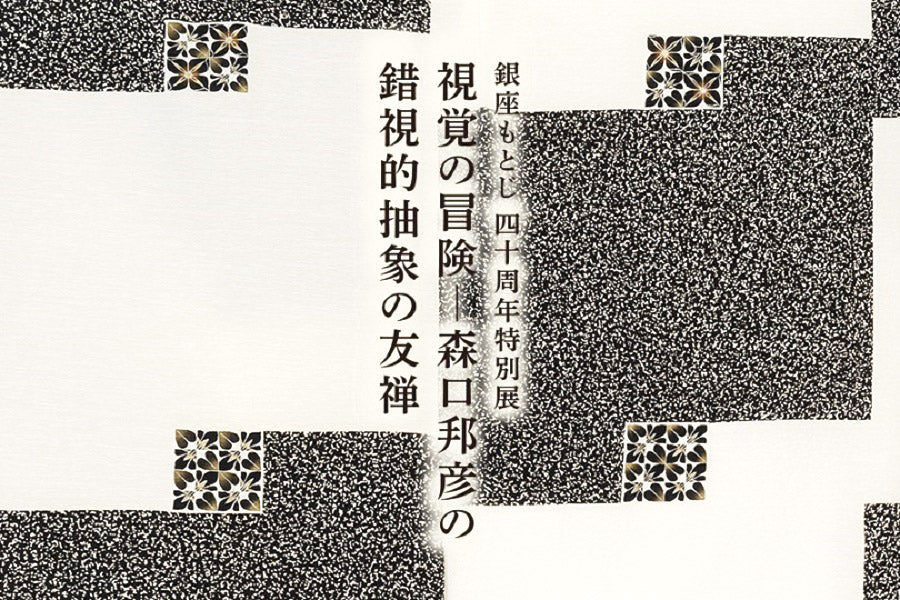 銀座もとじ 四十周年特別展
視覚の冒険―森口邦彦の
錯視的抽象の友禅